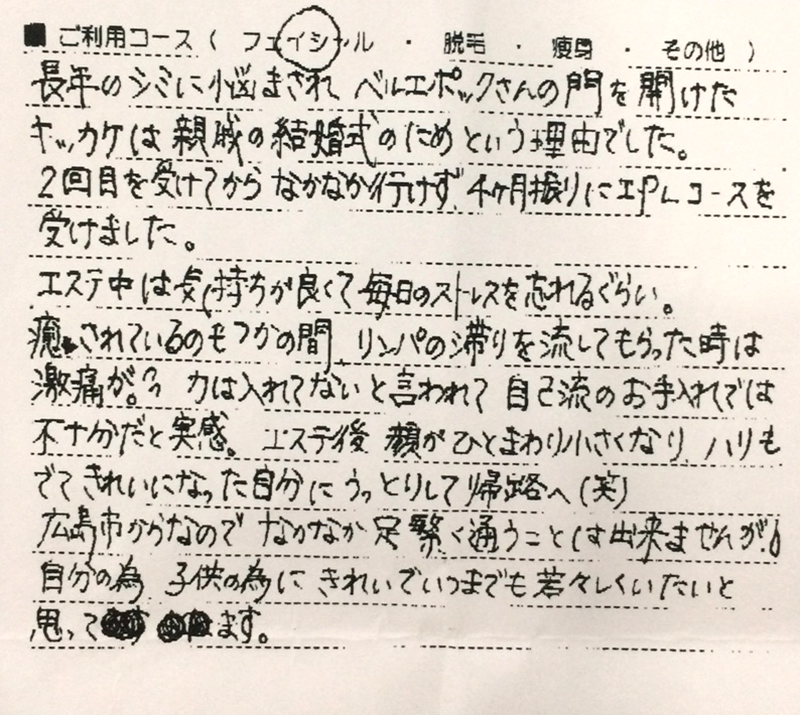 ■ ご利用コース ( フェイシャル ・ 脱毛 ・ 痩身 ・ その他 )
長年のシミに悩まされ ベルエポックさんの門を開けた
キッカケは親戚の結婚式のためという理由でした。
2回目を受けてからなかなか行けず、4ヶ月振りにIPLコースを
受けました。
エステ中は気持ちが良くて毎日のストレスを忘れるぐらい。
癒されているのもつかの間、リンパの滞りを流してもらった時は
激痛が。 力は入れてないと言われて 自己流のお手入れでは
不十分だと実感。 エステ後 顔がひとまわり小さくなり、ハリも
でてきれいになった自分にうっとりして帰路へ(笑)
広島市からなのでなかなか足繁く通うことは出来ませんが
自分の為 子供の為に きれいでいつまでも若々しくいたいと
思って ます。